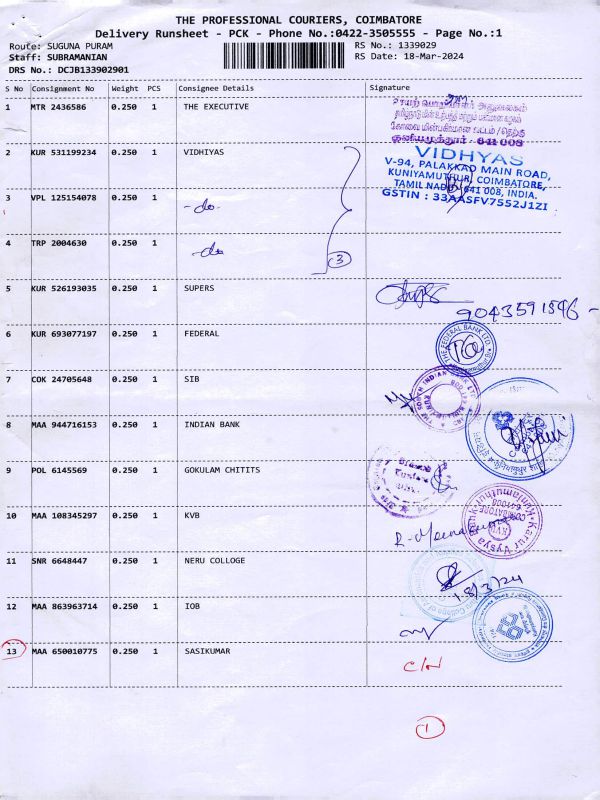 THE PROFESSIONAL COURIERS, COIMBATORE
Delivery Runsheet - PCK - Phone No.:0422-3505555 - Page No.:1
Route: SUGUNA PURAM
RS No.: 1339029
Staff: SUBRAMANIAN
RS Date: 18-Mar-2024
DRS No.: DCJB133902901
S No Consignment No Weight PCS Consignee Details Signature
1 MTR 2436586 0.250 1 THE EXECUTIVE
குனியமுத்தூர் - 641 008
2 KUR 531199234 0.250 1 VIDHIYAS
VIDHYAS
V-94, PALAKKAD MAIN ROAD,
KUNIYAMUTHUR, COIMBATORE,
TAMIL NADU, 641 008, INDIA.
GSTIN : 33AASFV7552J1ZI
3 VPL 125154078 0.250 1 -do-
4 TRP 2004630 0.250 1 -do-
3
5 KUR 526193035 0.250 1 SUPERS
9043591846 -
6 KUR 693077197 0.250 1 FEDERAL
THE FEDERAL BANK LTD.
7 COK 24705648 0.250 1 SIB
SOUTH INDIAN BANK LTD
8 MAA 944716153 0.250 1 INDIAN BANK
9 POL 6145569 0.250 1 GOKULAM CHITITS
10 MAA 108345297 0.250 1 KVB
Karur Vysya
COIMBATORE
641008
KVB
Kuniamuthur
11 SNR 6648447 0.250 1 NERU COLLOGE
18/3/24
12 MAA 863963714 0.250 1 IOB
13 MAA 650010775 0.250 1 SASIKUMAR
1